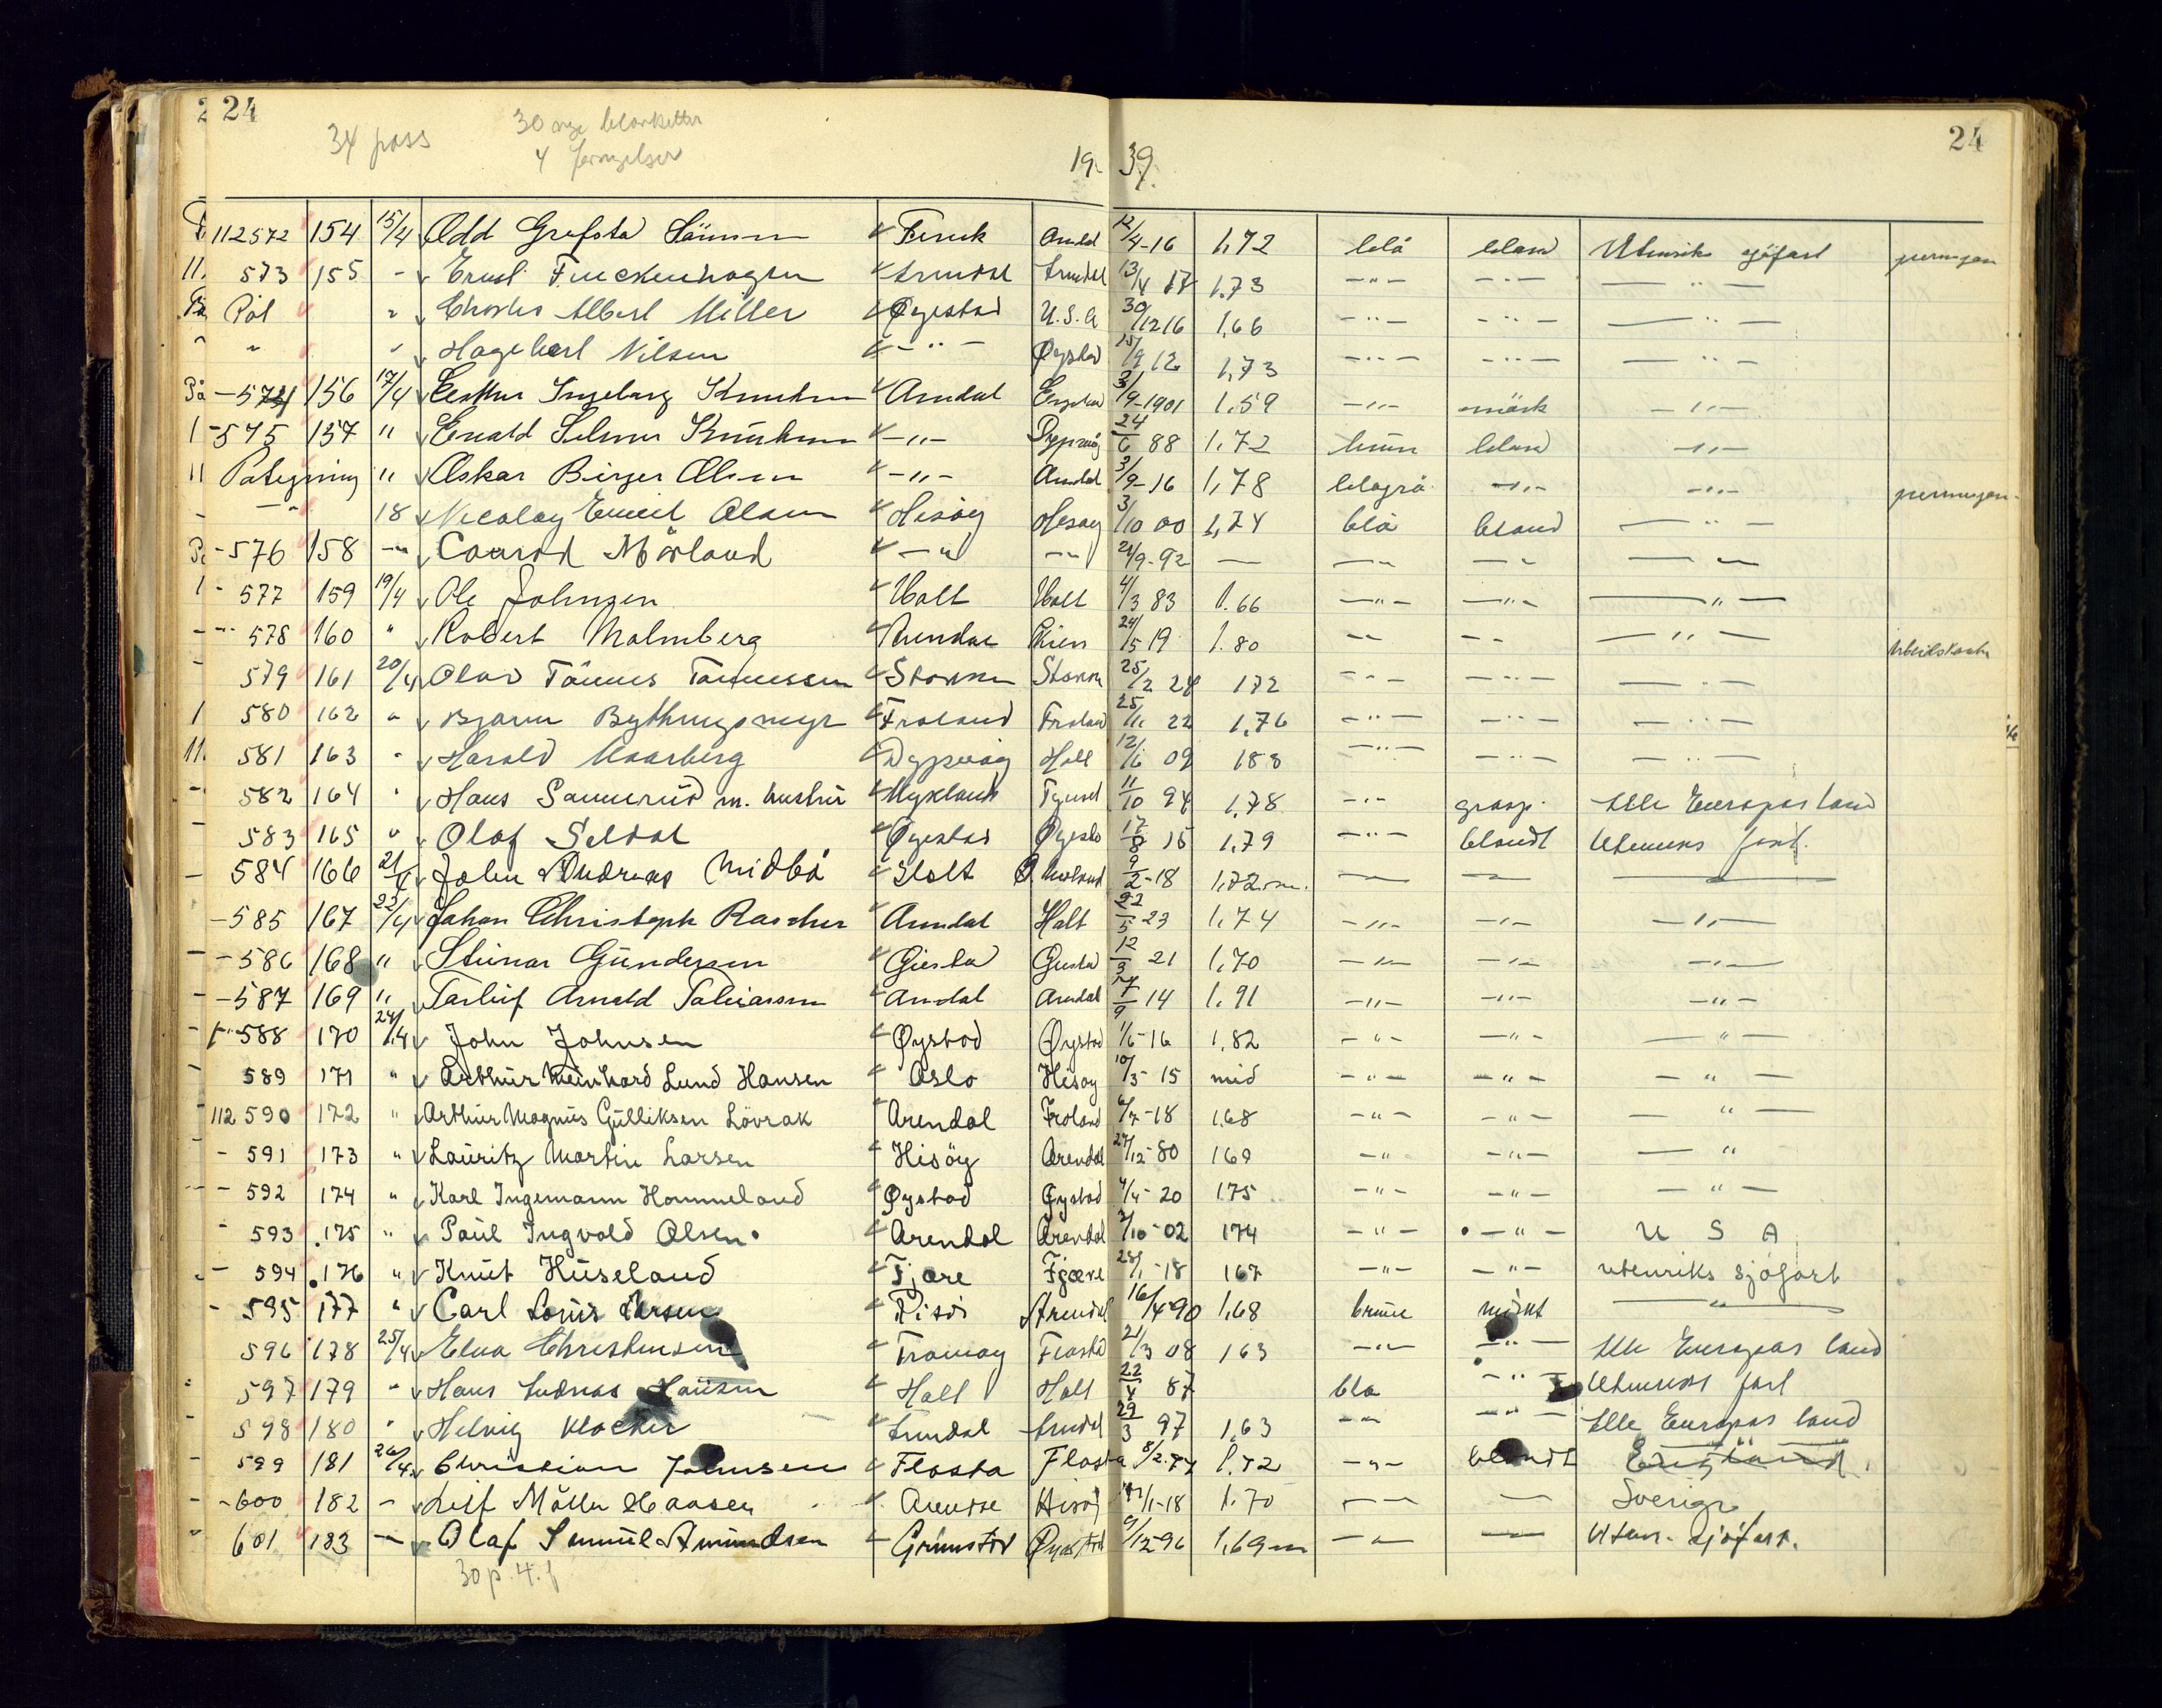 24 24
34 pass 30 nye blanketter
4 fornyelser
19 39
112572 154 15/4 Odd Grefstad Fevik Arendal 12/4-16 1,72 blå blond Utenriks sjöfart
573 155 - Finckenhagen Arendal Arendal 13/4 17 1,73 -"- -"- -"-
Pål " Charles Albert Miller Øyestad U.S.A 30/12 16 1,66 -"- -"- -"-
" " Hagebart Nilsen -"- Øyestad 15/9 12 1,73 -"- -"- -"-
-574 156 17/4 Ingeborg Knudsen Arendal 3/9-1901 1,59 -"- mörk -"-
-575 157 " Knudsen -"- Dypvåg 24/6 88 1,72 brun blond -"-
Påtegning " Oskar Birger Olsen -"- Arendal 3/9-16 1,78 blågrå -"- -"-
-"- 18 Nicolay Emil Olsen Hisöy Hisöy 3/10 00 1,74 blå blond -"-
-576 158 -"- Conrad Mörland -"- -"- 21/9-92 - -"- -"- -"-
577 159 19/4 Ole Johnsen Holt Holt 4/3 83 1.66 -"- -"- -"-
578 160 " Robert Malmberg Arendal Skien 24/5 19 1.80 -"- -"- -"-
579 161 20/4 Olav Tönnes Tönnessen Stokken Stokken 25/2 28 172 -"- -"- -"-
580 162 " Bjarne Froland Froland 25/11 22 1,76 -"- -"- -"-
581 163 " Harald Dypvåg Holt 12/6 09 188 -"- -"- -"-
582 164 " Hans Sannerud m. hustru Mykland Tynset 11/10 94 1,78 -"- Alle Europas land
583 165 " Olaf Seldal Øyestad Øyestad 17/8 15 1,79 -"- blondt Utenriks fart.
584 166 21/4 John Andreas Midbö Holt 9/2-18 1,72 m. - - -
-585 167 22/4 Johan Christoph Rascher Arendal Holt 22/5 23 1,74 -"- -"- -"-
-586 168 " Steinar Gundersen 12/3 21 1,70 -"- -"- -"-
-587 169 " Arnold Arendal Arendal 7/9 14 1,91 -"- -"- -"-
588 170 24/4 John Johnsen Øystad Øystad 1/6-16 1,82 -"- -"- -"-
589 171 " Arthur Meinhard Lund Hansen Oslo Hisøy 10/3-15 mid -"- -"- -"-
112 590 172 " Arthur Magnus Gulliksen Lövrak Arendal Froland 6/7-18 168 -"- -"- -"-
591 173 " Lauritz Martin Larsen Hisöy Arendal 27/12-80 169 -"- -"- -"-
592 174 " Karl Ingemann Hommeland Øystad Øystad 4/4-20 175 -"- -"- -"-
593 175 " Paul Ingvald Olsen Arendal Arendal 3/10-02 174 -"- -"- U S A
594 176 " Knut Huseland Fjære Fjære 28/1-18 167 -"- -"- utenriks sjöfart
595 177 " Carl Louis Larsen Risör Arendal 16/4 90 1,68 brune mörkt -"-
596 178 25/4 Elna Christensen Tromøy Flosta 21/3 08 163 -"- -"- Alle Europas land
597 179 " Hans Andreas Hansen Holt Holt 22/4 87 blå -"- Utenriks fart
598 180 " Helvig Klocker Arendal Arendal 29/3 97 1,63 -"- -"- Alle Europas land
599 181 26/4 Christian Johnsen Flosta Flosta 8/2-74 1,72 -"- blondt England
600 182 - Leif Möller Haasen Arendal Hisøy 1-18 1.70 -"- - Sverige
601 183 -"- Olaf Samuel Amundsen Grimstad Øyestad 9/12 96 1,69 m -"- - Uten. sjöfart.
30 p. 4. f